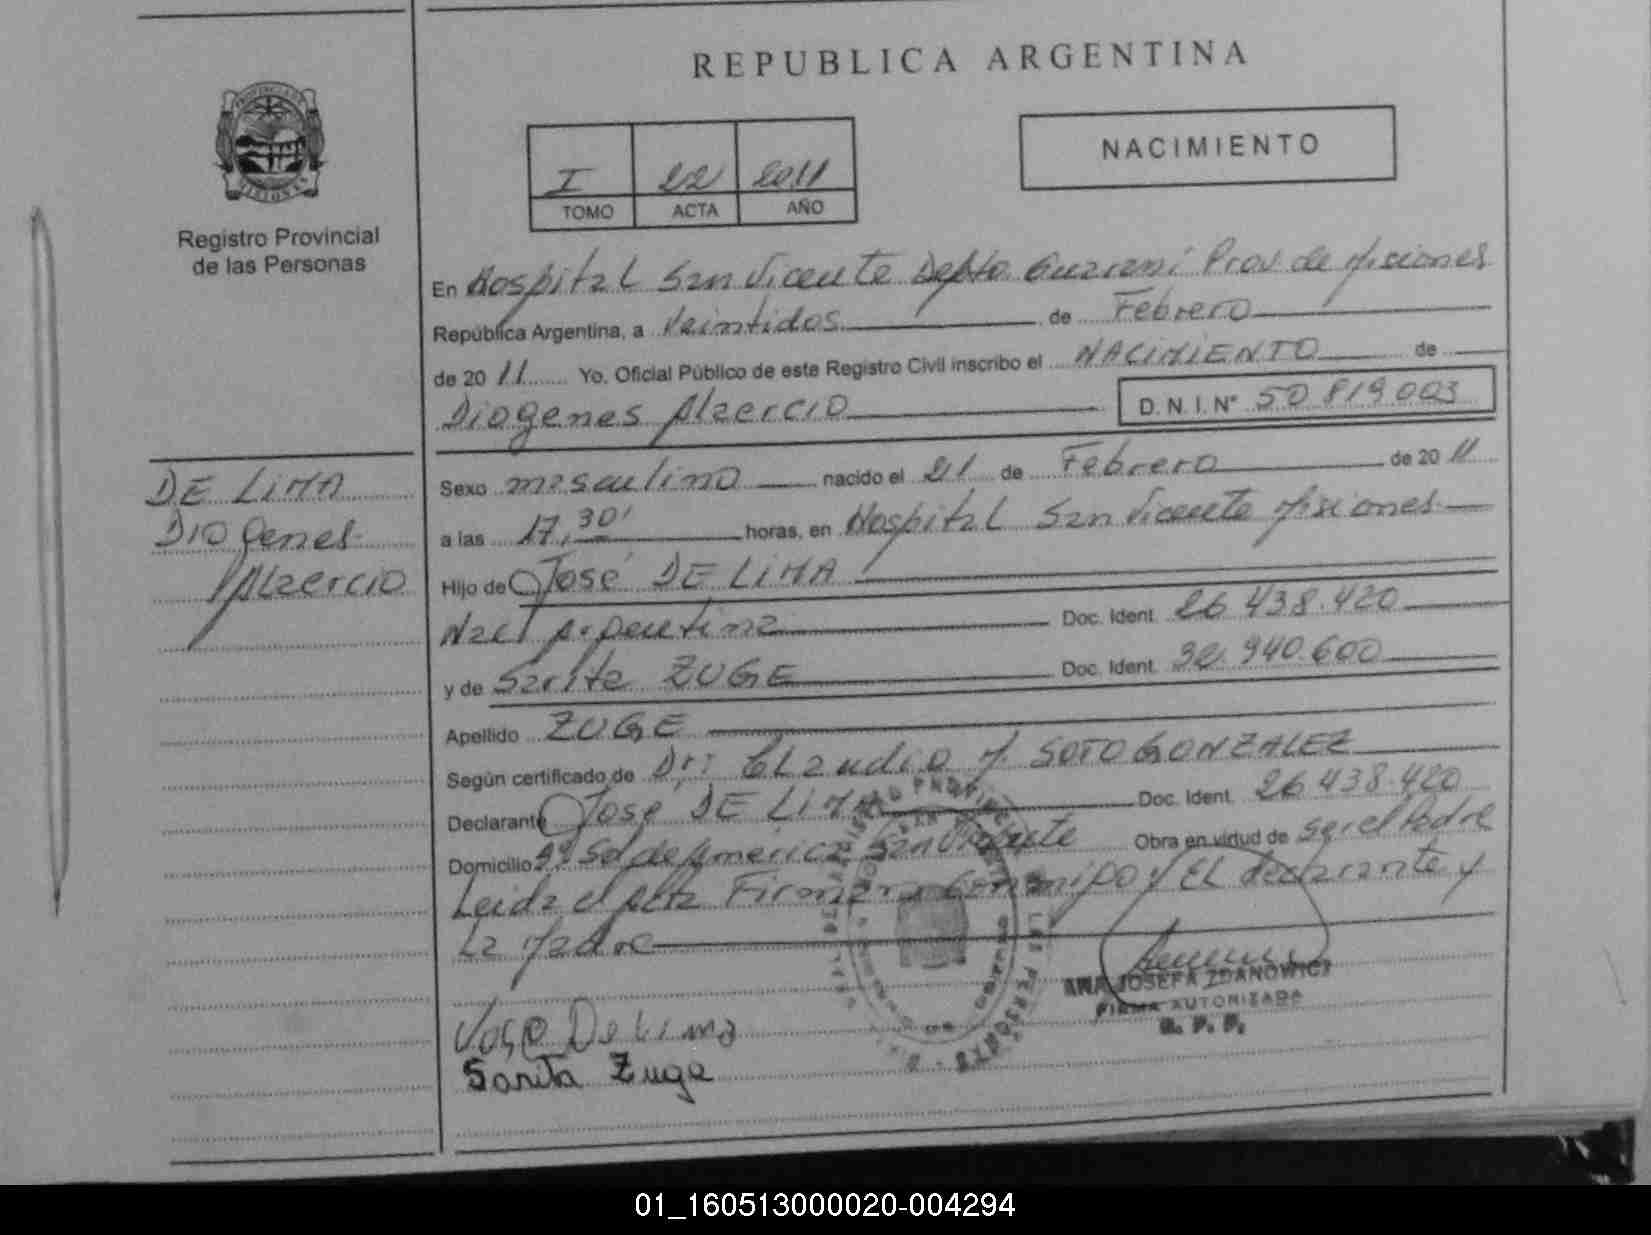 REPUBLICA ARGENTINA
I 22 2011
TOMO ACTA AÑO
NACIMIENTO
Registro Provincial
de las Personas
En Hospital San Vicente Depto. Guaraní Prov. de Misiones
República Argentina, a Veintidos de Febrero
de 20 11 Yo, Oficial Público de este Registro Civil inscribo el NACIMIENTO de
Diogenes Alzercio
D.N.I. N° 50 819 003
DE LIMA
Diogenes
Alzercio
Sexo masculino nacido el 21 de Febrero de 20 11
a las 17,30' horas, en Hospital San Vicente Misiones
Hijo de José DE LIMA
Nac. Argentina Doc. Ident. 26 438.420
y de Sarita ZUGE Doc. Ident. 32 940.600
Apellido ZUGE
Según certificado de Dr: Claudio M. SOTO GONZALEZ
Declarante José DE LIMA Doc. Ident. 26 438.420
Domicilio Sol de America San Vicente Obra en virtud de ser el Padre
Leida el Acta Firman Conmigo El declarante y
La Madre
ANA JOSEFA ZDANOWICZ
FIRMA AUTORIZADA
R. P. P.
José De Lima
Sarita Zuge
01_160513000020-004294